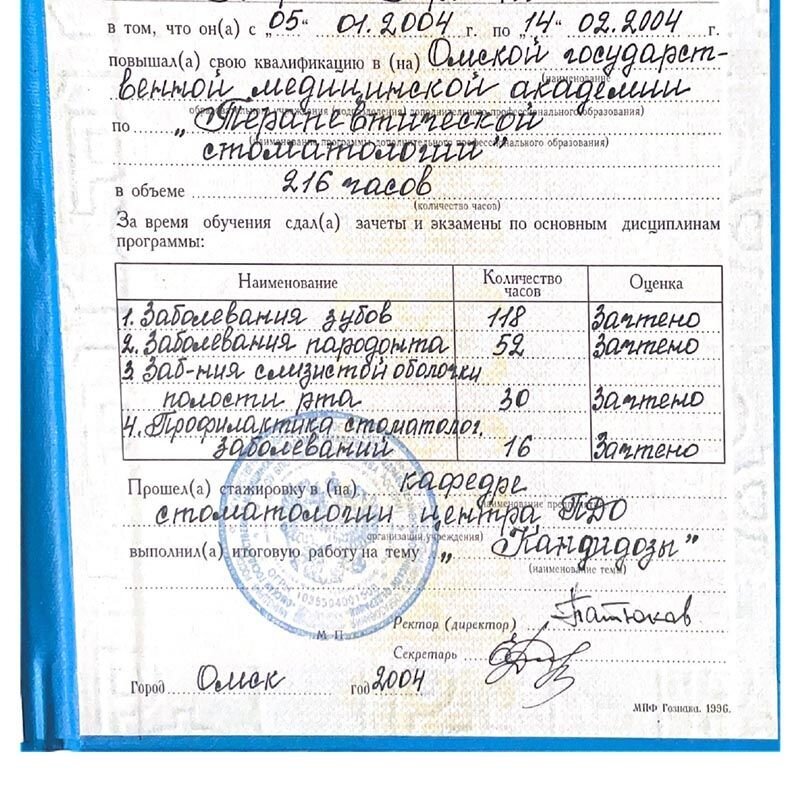 в том, что он(а) с „05“ 01.2004 г. по „14“ 02.2004 г.
повышал(а) свою квалификацию в (на) Омской государст-
(наименование
венной медицинской академии
образовательного учреждения (подразделения) дополнительного профессионального образования)
по „Терапевтической
стоматологии“
(наименование программы дополнительного профессионального образования)
в объеме 216 часов
(количество часов)
За время обучения сдал(а) зачеты и экзамены по основным дисциплинам
программы:
Наименование Количество часов Оценка
1. Заболевания зубов 118 Зачтено
2. Заболевания пародонта 52 Зачтено
3. Заб-ния слизистой оболочки
полости рта 30 Зачтено
4. Профилактика стоматолог.
заболеваний 16 Зачтено
Прошел(а) стажировку в (на) кафедре
(наименование предприятия,
стоматологии центра ПДО
организации, учреждения)
выполнил(а) итоговую работу на тему „Кандидозы“
(наименование темы)
Ректор (директор)
М П
Секретарь
Город Омск год 2004
МПФ Гознака. 1996.